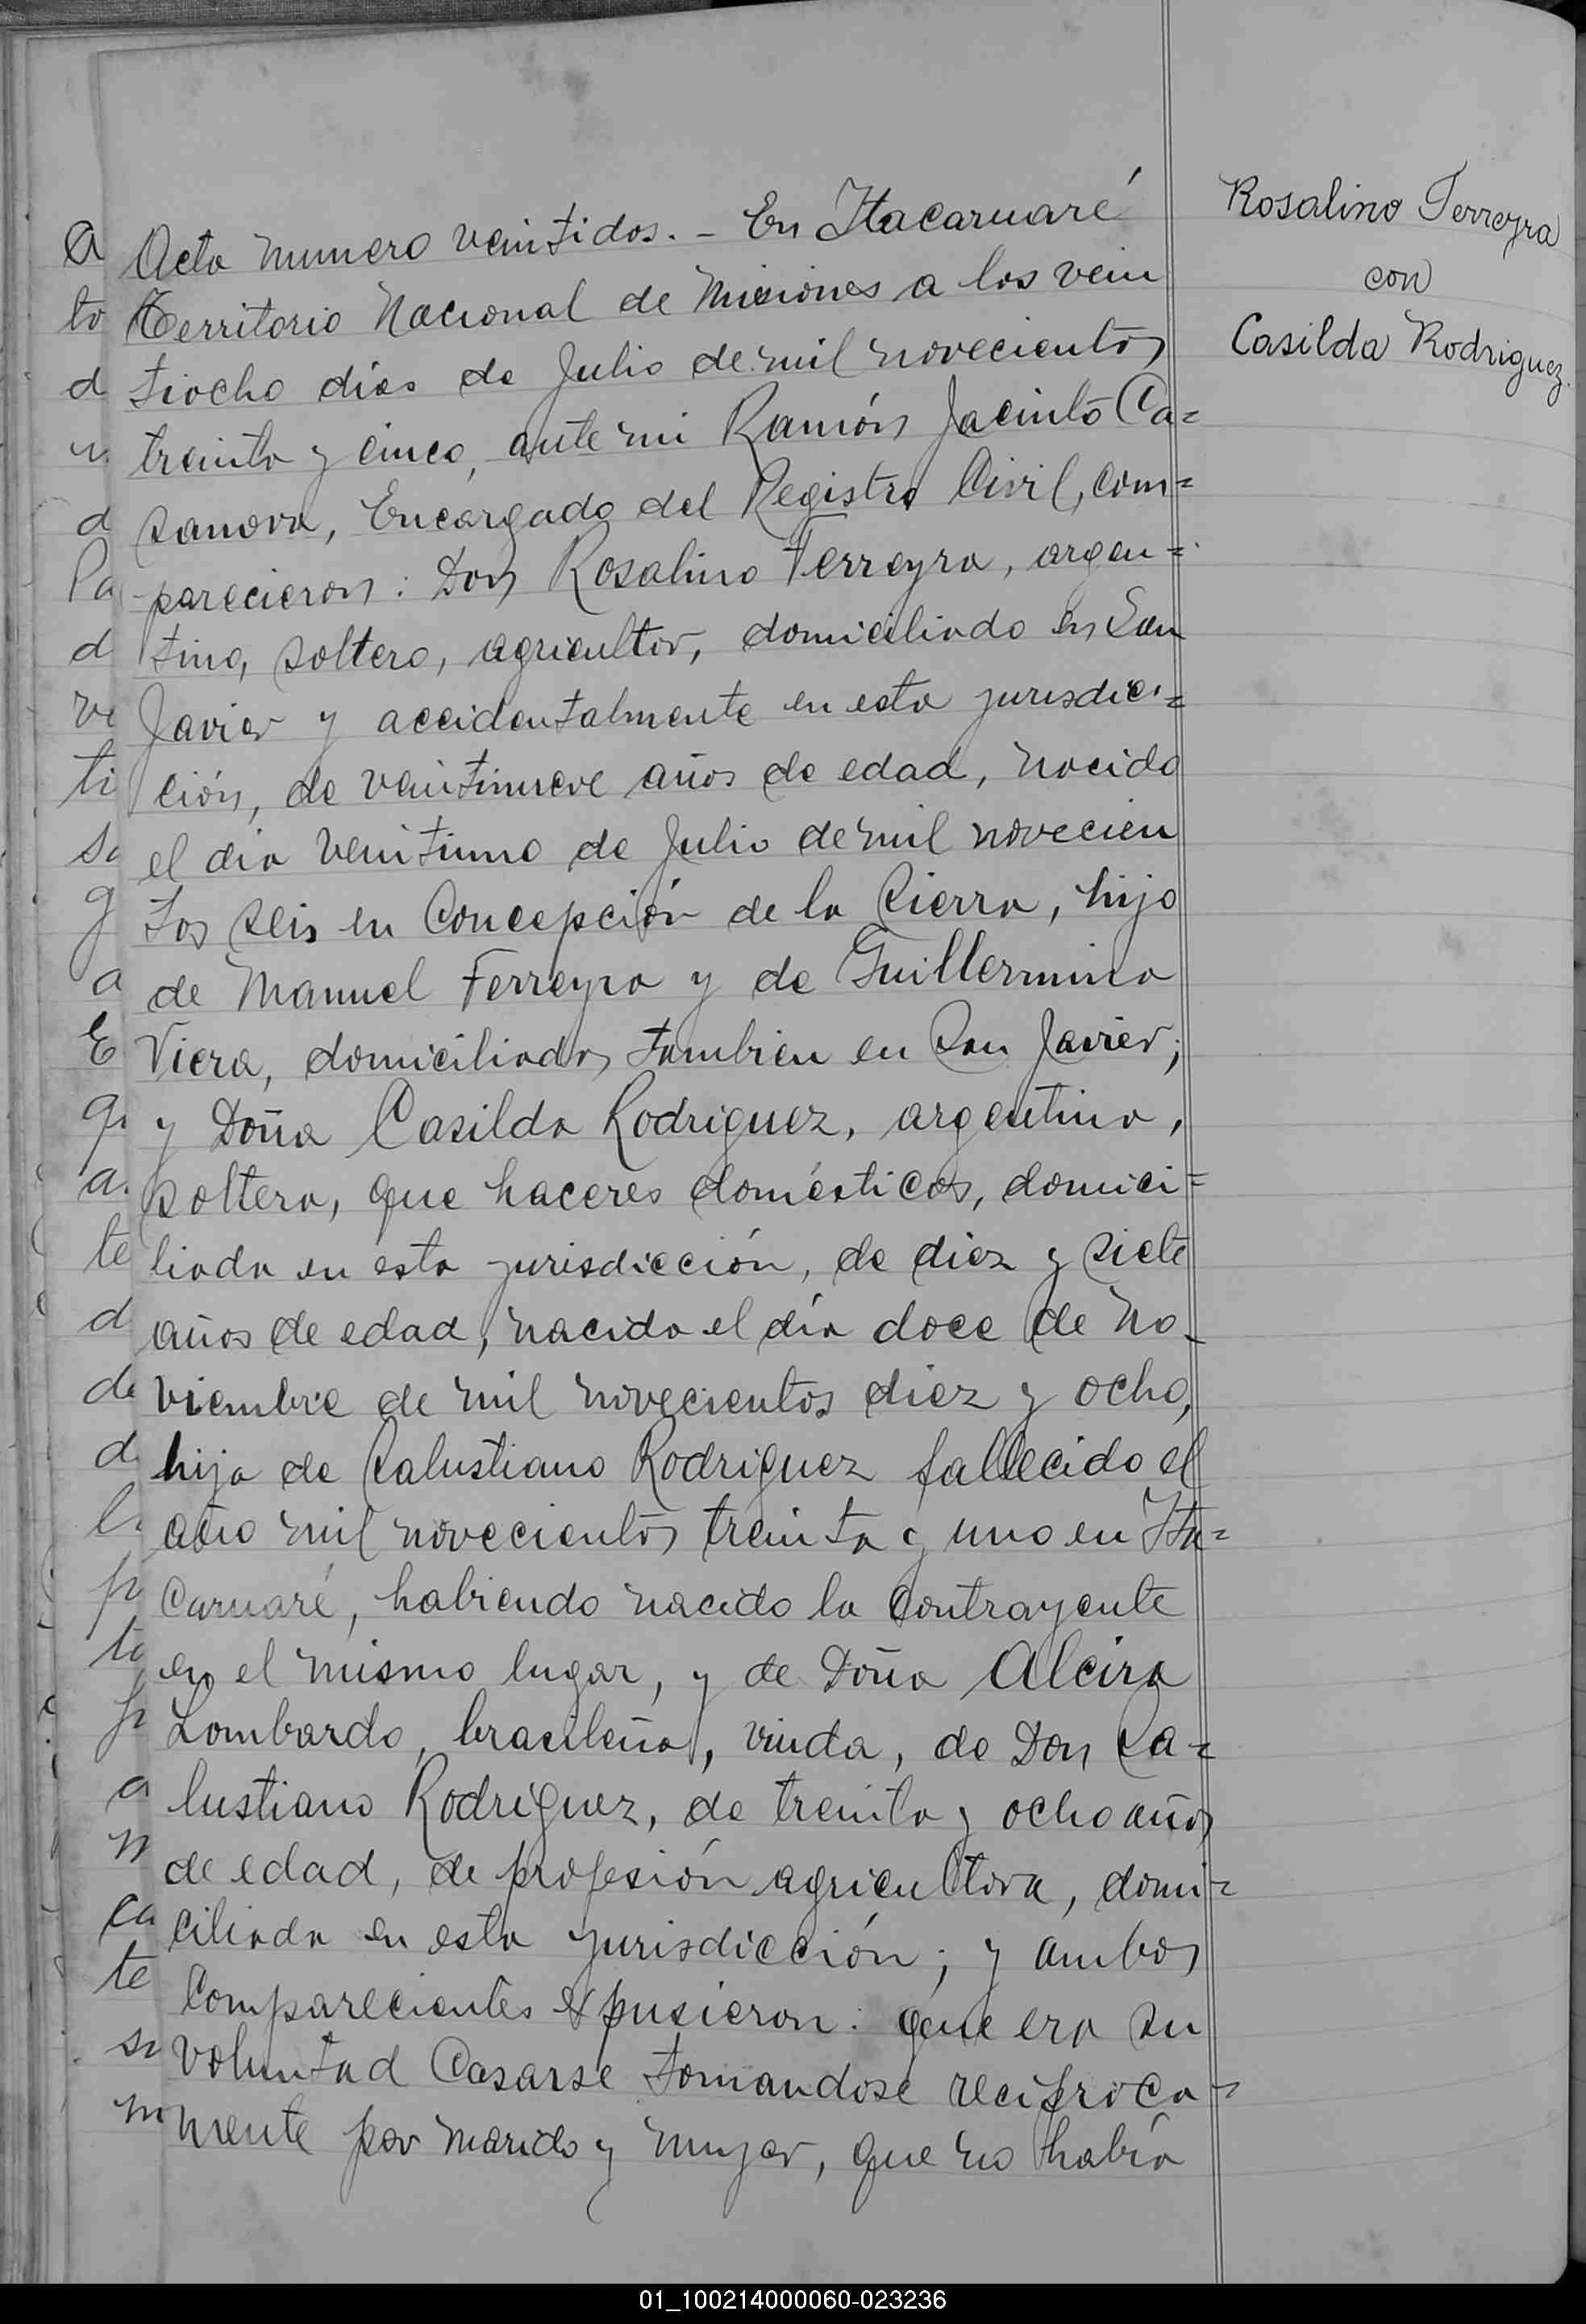 Rosalino Ferreyra
con
Casilda Rodriguez.
Acta numero veintidos. - En Itacaruaré
Territorio Nacional de Misiones a los vein
tiocho días de Julio de mil novecientos
treinta y cinco, ante mi Ramón Jacinto Ca=
sanova, Encargado del Registro Civil, com=
parecieron: Don Rosalino Ferreyra, argen=
tino, soltero, agricultor, domiciliado en San
Javier y accidentalmente en esta jurisdic=
ción, de veintinueve años de edad, nacido
el dia veintiuno de Julio de mil novecien
tos seis en Concepción de la Sierra, hijo
de Manuel Ferreyra y de Guillermina
Viera, domiciliados tambien en San Javier;
y Doña Casilda Rodriguez, argentina,
soltera, que haceres domésticos, domici=
liada en esta jurisdicción, de diez y siete
años de edad, nacida el día doce de No-
viembre de mil novecientos diez y ocho,
hija de Salustiano Rodriguez fallecido el
año mil novecientos treinta y uno en Ita=
caruaré, habiendo nacido la contrayente
en el mismo lugar, y de Doña Alcira
Lombardo, brasileña, viuda, de Don Sa=
lustiano Rodriguez, de treinta y ocho años
de edad, de profesión agricultora, domi=
ciliada en esta jurisdicción; y ambos
comparecientes expusieron: que era su
voluntad casarse tomandose reciproca=
mente por marido y mujer, que no había
01_100214000060-023236